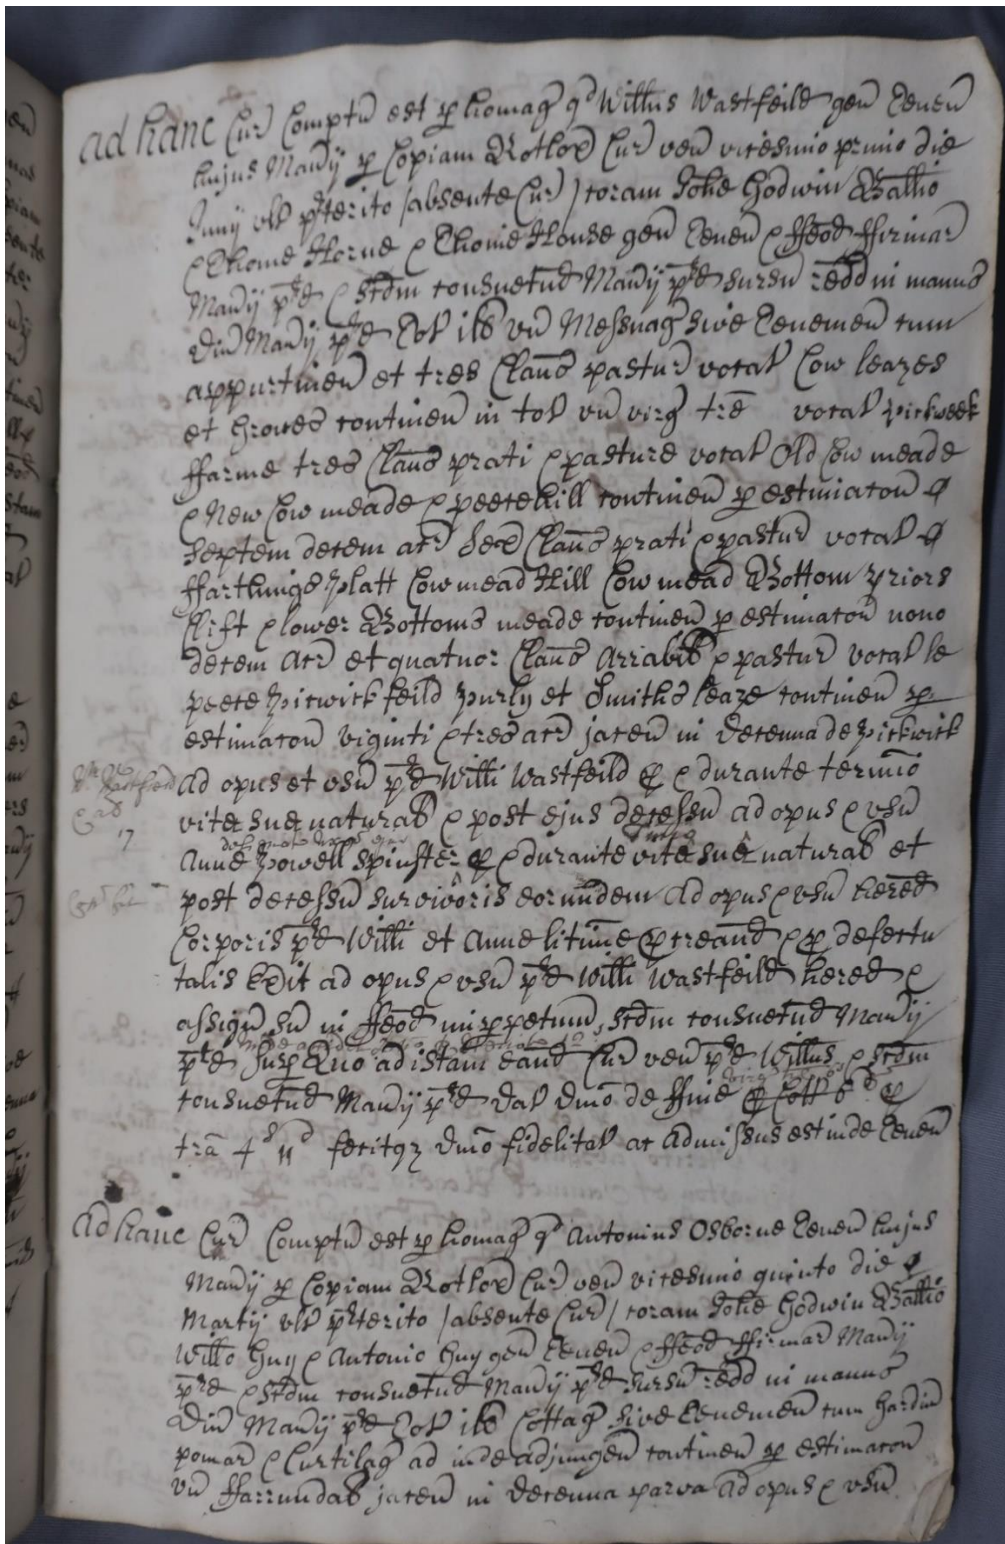 ad hanc Cur Comptu est p homag qd Willus Wastfeild gen Tenen
hujus Manij p Copiam Rotlor Cur ven vicesimo primo die
Junij ult pterito /absente Cur/ coram Johe Godwin Ballio
& Thome Horne & Thome House gen Tenen & ffeod ffirmar
Manij pd & scdm consuetud Manij pd sursu redd in manus
Dni Manij pd Tot ill un Messuag sive Tenemen cum
appurtinen et tres Claus pastur vocat Cow leazes
et Groves continen in tot un virg tre vocat Pickweek
ffarme tres Claus prati & pasture vocat Old Cow meade
& New Cow meade & peecehill continen p estimacon
septem decem acr Sex Claus prati & pastur vocat
ffarthings Platt Cowmead Hill Cowmead Bottom Priors
Clift & lower Bottoms meade continen p estimacon novo
decem Acr et quatuor Claus Arriabil & pastur vocat le
peece Picwick feild Purly et Smiths leaze continen p
estimacon viginti & tres acr jacen in Decenna de Pickwick
Ad opus et usu pd Willi Wastfeild & durante termio
vite sue natural & post ejus decessu ad opus & usu
Anne Powell Spinster & durante vite sue natural et
post decessu survivoris eorundem Ad opus & usu hered
Corporis pd Willi et Anne litime pcreand & p defectu
talis exit ad opus & usu pd Willi Wastfeild hered &
assign su in ffeod imppetuum scdm consuetud Manij
pd Sup Quo ad istam eand Cur ven pd Willus & scdm
consuetud Manij pd dat dno de ffine Cott 6d
tra 4s 11d fecitqz dno fidelitat ac Admissus est inde Tenen
Ad hanc Cur Comptu est p homag q Antonius Osborne Tenen hujus
Manij p Copiam Rotlor Cur ven vicesimo quinto die
Martij ult pterito /absente Cur/ coram Johe Godwin Ballio
Willo Guy & Antonio Guy gen Tenen & ffeod ffirmar Manij
pd & scdm consuetud Manij pd sursu redd in manus
Dni Manij pd Tot ill Cottag sive Tenemen cum Gardin
pomar & Curtilag ad inde adjungen continen p estimacon
un ffarrundal jacen in Decenna parva Ad opus & usu